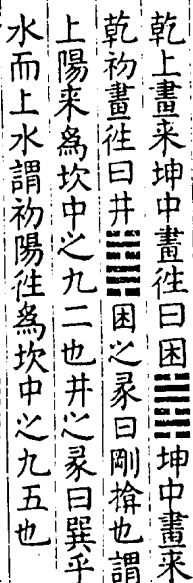 乾上畫来坤中畫徃曰困䷮坤中畫来
乾初畫徃曰井䷯困之彖曰剛揜也謂
上陽来為坎中之九二也井之彖曰巽乎
水而上水謂初陽徃為坎中之九五也